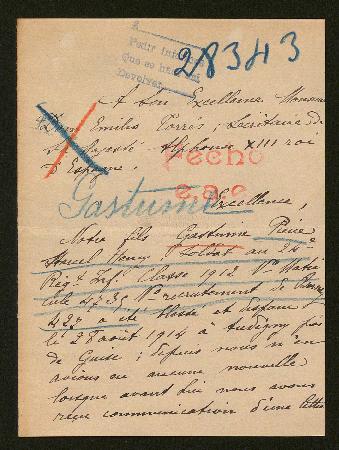 Pedir informe
Que se ha
Devolver
28343
A Son Excellence Monsieur
Don Emilio Torrés, Secrétaire de
Sa Majesté Alphonse XIII roi
d'Espagne.
Fecho
Gasturne
Excellence,
Notre fils Gasturne Pierre
Marcel Henry Soldat au 24e
Régt Infie Classe 1912 No Matri
cule 4735 No recrutement de
427 a été blessé et disparu
le 28 août 1914 à Audigny près
de Guise; depuis nous n'en
avions eu aucune nouvelle
lorsque avant hier nous avons
reçu communication d'une lettre